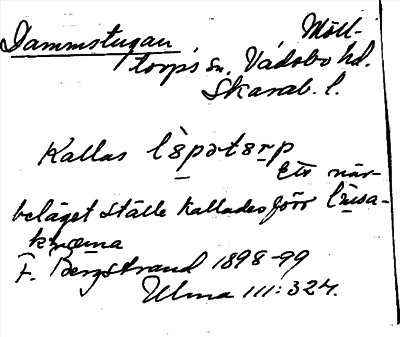 Dammstugan Möll-
torps sn. Vadsbo hd.
Skarab. l.
Kallas lôpətorp
Ett när-
beläget ställe kallades förr lusa-
kræma
F. Bergstrand 1898-99
Ulma 111:324.